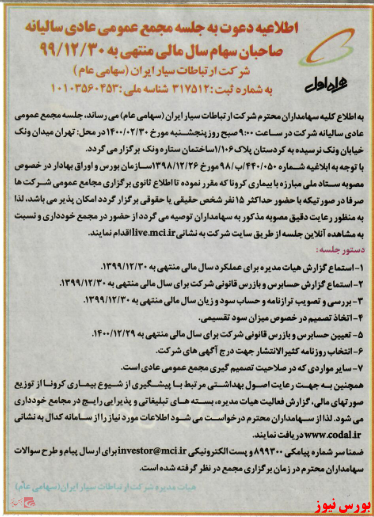 اطلاعیه دعوت به جلسه مجمع عمومی عادی سالیانه
صاحبان سهام سال مالی منتهی به ۹۹/۱۲/۳۰
شرکت ارتباطات سیار ایران (سهامی عام)
به شماره ثبت: ۳۱۷۵۱۲ شناسه ملی: ۱۰۱۰۳۵۶۰۴۵۳
همراه اول
به اطلاع کلیه سهامداران محترم شرکت ارتباطات سیار ایران (سهامی عام) می رساند، جلسه مجمع عمومی
عادی سالیانه شرکت در ساعت ۹:۰۰ صبح روز پنجشنبه مورخ ۱۴۰۰/۰۲/۳۰ در محل: تهران میدان ونک
خیابان ونک نرسیده به کردستان پلاک ۱۰۶/۱ ساختمان ستاره ونک برگزار می گردد.
با توجه به ابلاغیه شماره ۴۴۰/۰۵۰/ب/۹۸ مورخ ۱۳۹۸/۱۲/۲۶ سازمان بورس و اوراق بهادار در خصوص
مصوبه ستاد ملی مبارزه با بیماری کرونا که مقرر نموده تا اطلاع ثانوی برگزاری مجامع عمومی شرکت ها
صرفا در صورتیکه با حضور حداکثر ۱۵ نفر شخص حقیقی یا حقوقی برگزار گردد امکان پذیر می باشد، لذا
به منظور رعایت دقیق مصوبه مذکور به سهامداران توصیه می گردد از حضور در مجمع خودداری و نسبت
به مشاهده آنلاین جلسه از طریق سایت شرکت به نشانی live.mci.ir اقدام نمایند.
دستور جلسه:
۱- استماع گزارش هیات مدیره برای عملکرد سال مالی منتهی به ۱۳۹۹/۱۲/۳۰.
۲- استماع گزارش حسابرس و بازرس قانونی شرکت برای سال مالی منتهی به ۱۳۹۹/۱۲/۳۰.
۳- بررسی و تصویب ترازنامه و حساب سود و زیان سال مالی منتهی به ۱۳۹۹/۱۲/۳۰.
۴- اتخاذ تصمیم در خصوص میزان سود تقسیمی.
۵- تعیین حسابرس و بازرس قانونی شرکت برای سال مالی منتهی به ۱۴۰۰/۱۲/۲۹.
۶- انتخاب روزنامه کثیرالانتشار جهت درج آگهی های شرکت.
۷- سایر مواردی که در صلاحیت تصمیم گیری مجمع عمومی عادی است.
همچنین به جهت رعایت اصول بهداشتی مرتبط با پیشگیری از شیوع بیماری کرونا از توزیع
صورتهای مالی، گزارش فعالیت هیات مدیره، بسته های تبلیغاتی و پذیرایی رایج در مجامع خودداری
می شود. لذا از سهامداران محترم درخواست می شود اطلاعات مورد نیاز را از سامانه کدال به نشانی
www.codal.ir دریافت نمایند.
ضمنا سرشماره پیامکی ۸۹۹۳۰۰ و پست الکترونیکی investor@mci.ir برای ارسال پیام و طرح سوالات
سهامداران محترم در زمان برگزاری مجمع در نظر گرفته شده است.
هیات مدیره شرکت ارتباطات سیار ایران (سهامی عام)
بورس نیوز